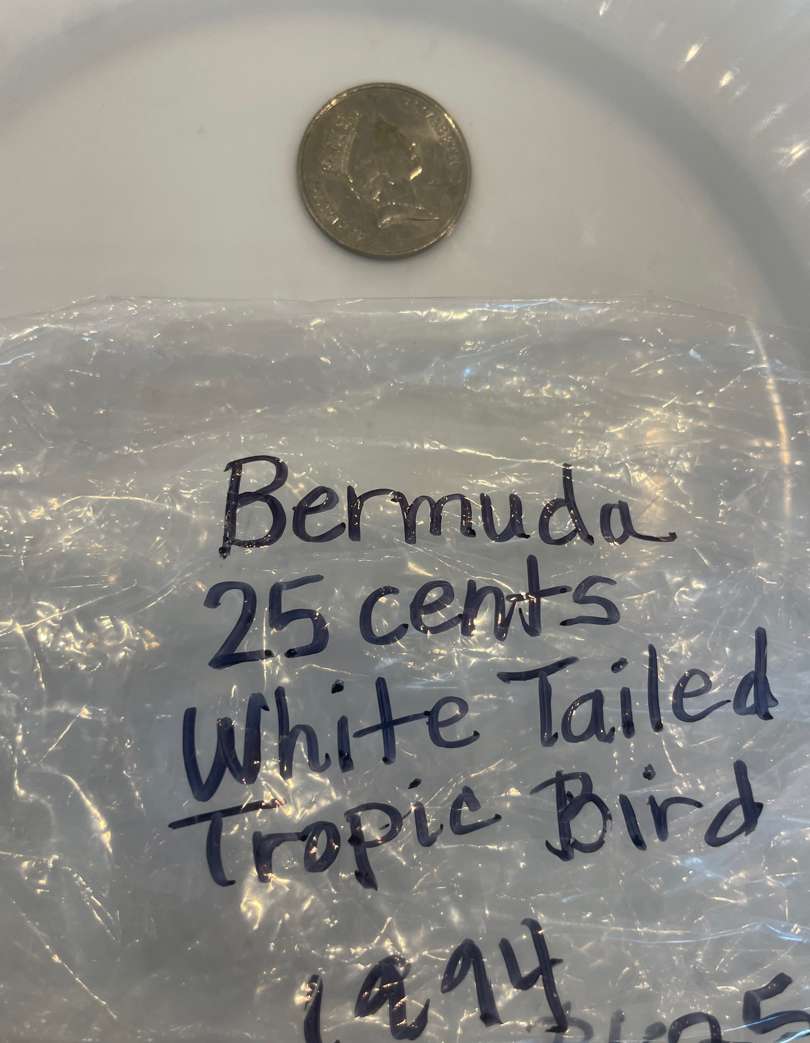 Bermuda
25 cents
White Tailed
Tropic Bird
1994